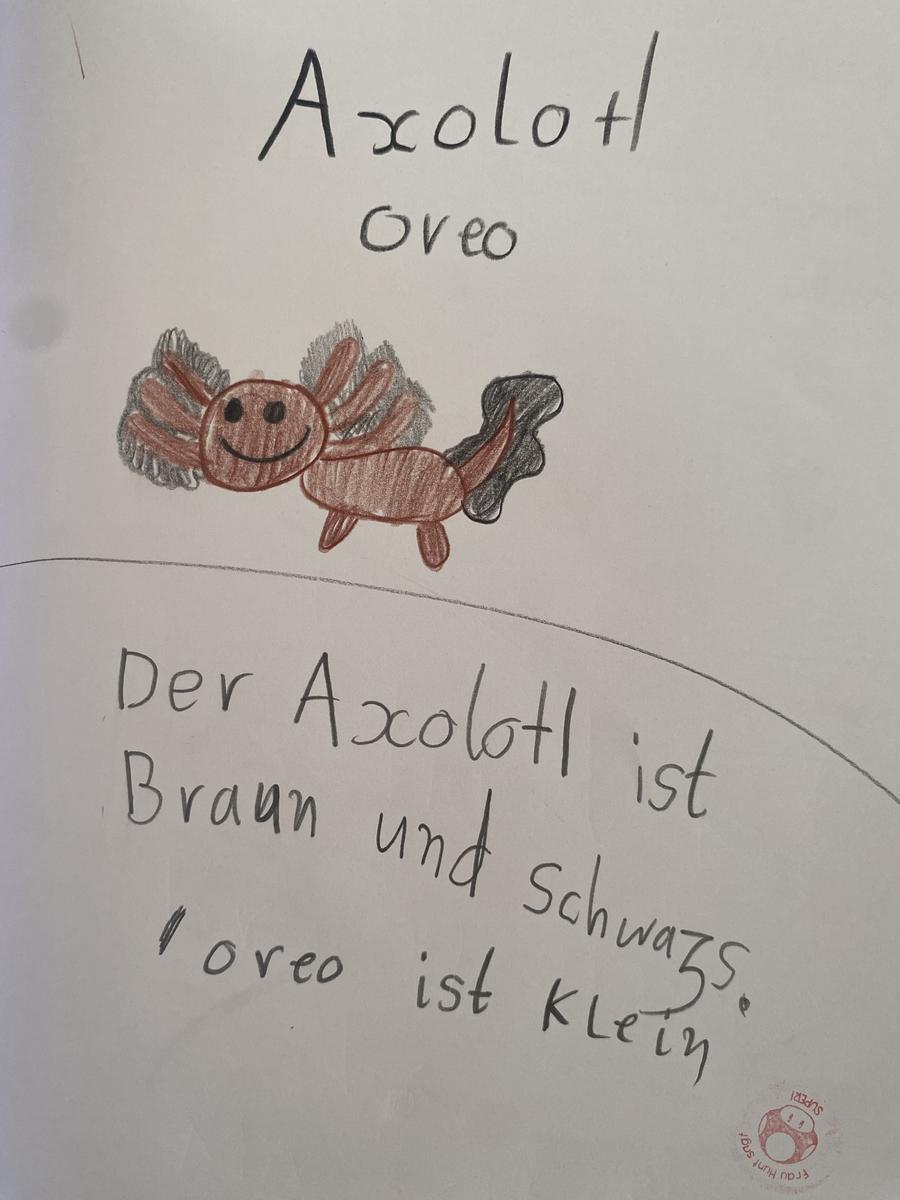 Axolotl
oreo
Der Axolotl ist
Braun und Schwazs.
oreo ist KLein
Frau Hunt sagt
SUPER!